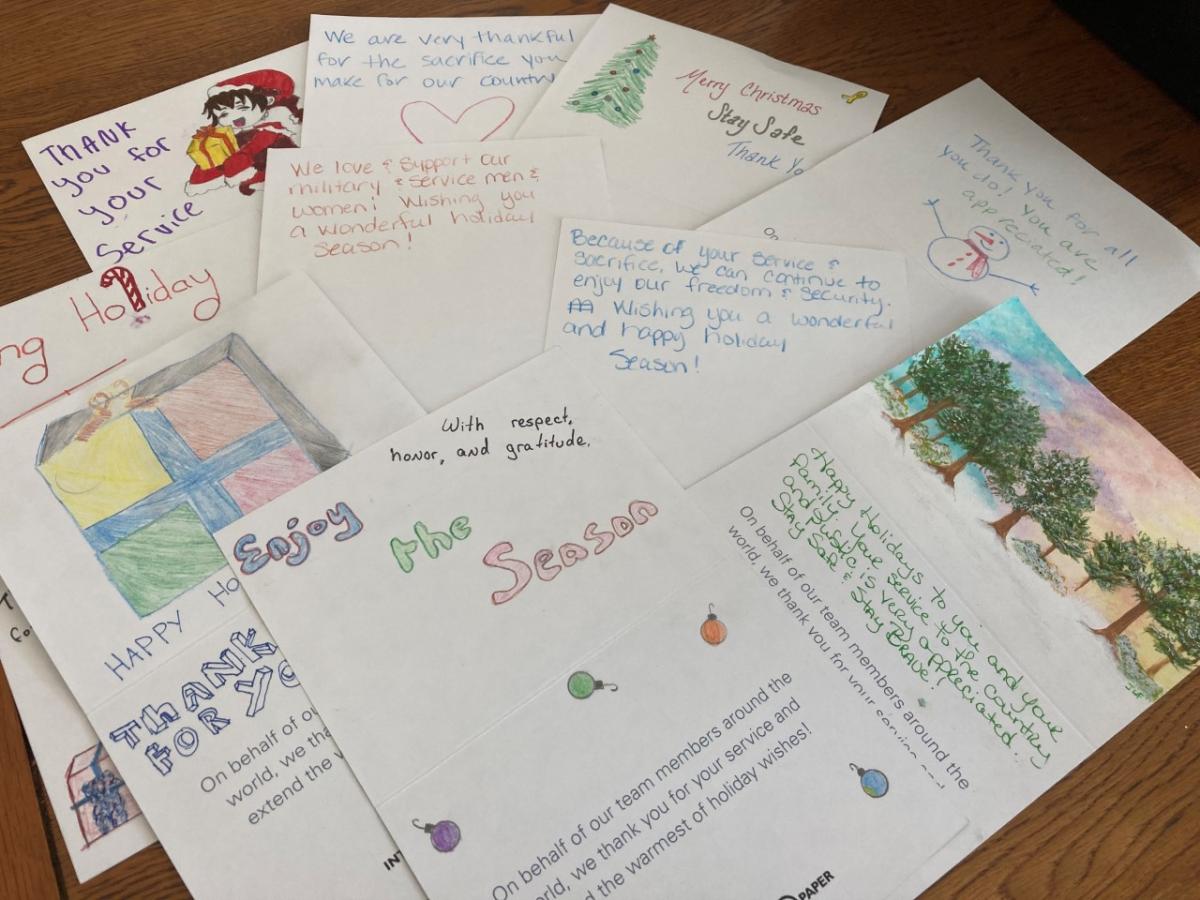 THANK
you for
your
Service
We are very thankful
for the sacrifice you
make for our country
Merry Christmas
Stay Safe
Thank Yo
Thank you for all
you do! You are
appreciated!
We love & Support our
military & service men &
women! Wishing you
a wonderful holiday
season!
Because of your service &
sacrifice, we can continue to
enjoy our freedom & security.
Wishing you a wonderful
and happy holiday
Season!
On
Holiday
ng
HAPPY Ho
THANK
FOR YO
On behalf of ou
world, we tha
extend the w
INT
With respect,
honor, and gratitude.
Enjoy the Season
On behalf of our team members around the
orld, we thank you for your service and
d the warmest of holiday wishes!
PAPER
Happy Holidays to you and your
Family. Your service to the country
and public is very appreciated.
Stay Safe & Stay BRAVE!
On behalf of our team members around the
world, we thank you for your service